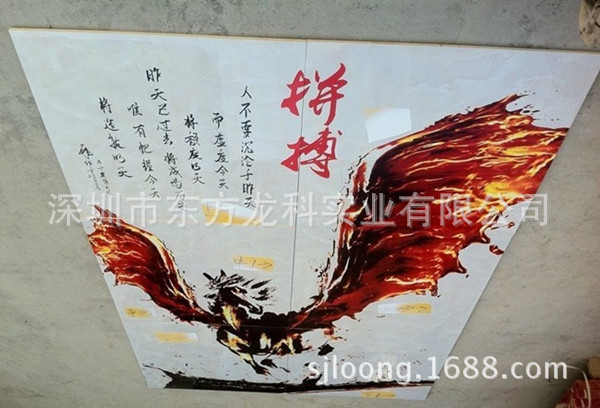 拼搏
人不要沉沦于昨天
而虚度今天
废明天
昨天已过去 将成
唯有把握今天
将造就明天
深圳市东方龙科实业有限公司
sjloong.1688.com